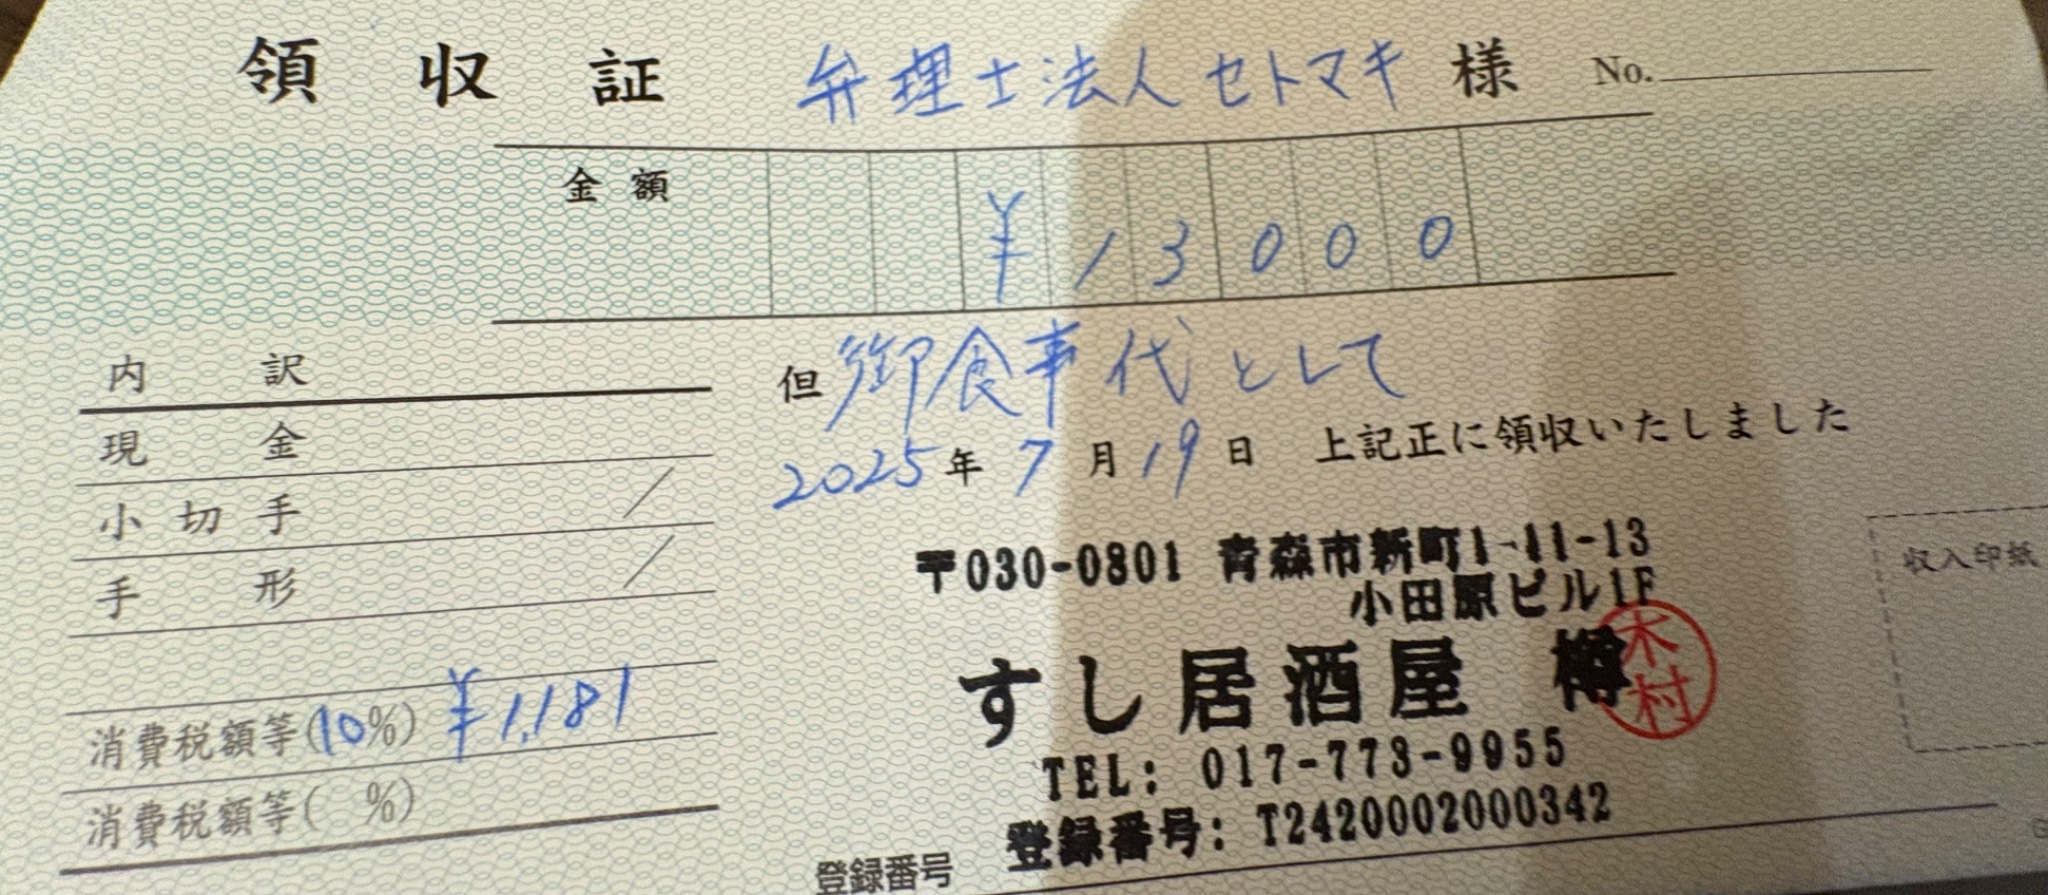 領収証 弁理士法人セトマキ 様 No.
金額 ¥13000
但 御食事代として
2025年7月19日 上記正に領収いたしました
内訳
現金
小切手 /
手形 /
消費税額等(10%) ¥1,181
消費税額等( %)
〒030-0801 青森市新町1-11-13
小田原ビル1F
すし居酒屋 樽
木村
TEL: 017-773-9955
登録番号: T2420002000342
登録番号
収入印紙